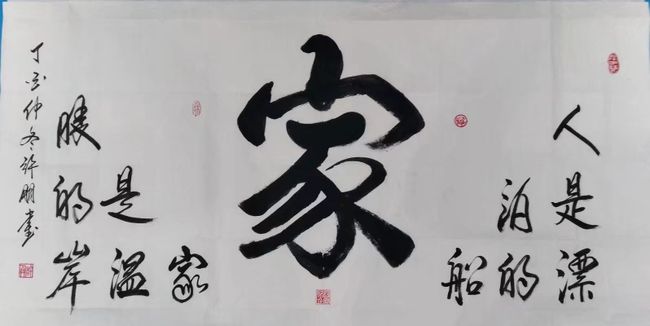 人是漂
泊的
船
家
家
是温
暖的岸
丁酉仲冬许朋書